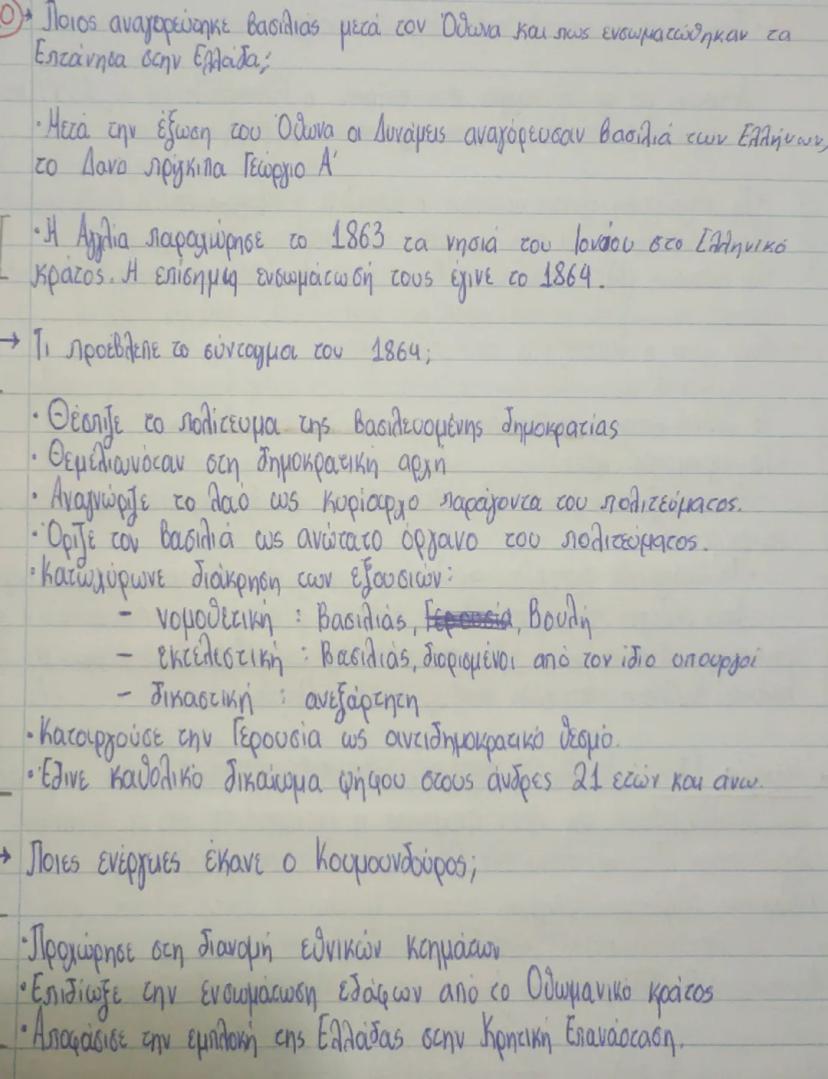 Ποιος αναγορεύθηκε βασιλιάς μετά τον Όθωνα και πως ενσωματώθηκαν τα
Επτάνησα στην Ελλάδα;
· Μετά την έξωση του Όθωνα οι Δυνάμεις αναγόρευσαν βασιλιά των Ελλήνων,
το Δανο πρίγκιπα Γεώργιο Α'
· Η Αγγλία παραχώρησε το 1863 τα νησιά του Ιονίου στο Ελληνικό
κράτος. Η επίσημη ενσωμάτωσή τους έγινε το 1864.
→ Τι προέβλεπε το σύνταγμα του 1864;
· Θέσπιζε το πολίτευμα της βασιλευομένης δημοκρατίας
· Θεμελιωνόταν στη δημοκρατική αρχή
· Αναγνώριζε το λαό ως κυρίαρχο παράγοντα του πολιτεύματος.
· Όριζε τον βασιλιά ως ανώτατο όργανο του πολιτεύματος.
· Κατωχύρωνε διάκρηση των εξουσιών:
– νομοθετική : Βασιλιάς, Γερουσία, Βουλή
– εκτελεστική : Βασιλιάς, διορισμένοι από τον ίδιο υπουργοί
– δικαστική : ανεξάρτητη
· Καταργούσε την Γερουσία ως αντιδημοκρατικό θεσμό.
· Έδινε καθολικό δικαίωμα ψήφου στους άνδρες 21 ετών και άνω.
→ Ποιες ενέργιες έκανε ο Κουμουνδούρος;
· Προχώρησε στη διανομή εθνικών κτημάτων
· Επιδίωξε την ενσωμάτωση εδάφων από το Οθωμανικό κράτος
· Αποφάσισε την εμπλοκή της Ελλάδας στην Κρητική Επανάσταση.